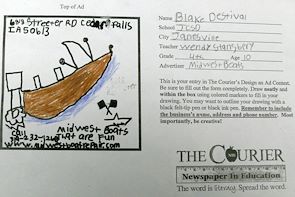 Top of Ad
Streeter RD Cedar Falls
IA 50613
Call
Midwest Boats
That are fun
Name Blake Destival
School JCSD
City Janesville
Teacher Wendy Stansberry
Grade 4th Age 10
Advertiser Midwest Boats
This is your entry in The Courier's Design an Ad Contest.
Be sure to fill out the form completely. Draw neatly and
within the box using colored markers to fill in your
drawing. You may want to outline your drawing with a
black felt-tip pen or black ink pen. Remember to include
the business's name, address and phone number. Most
importantly, be creative!
THE COURIER
Newspaper In Education
The word is literacy. Spread the word.